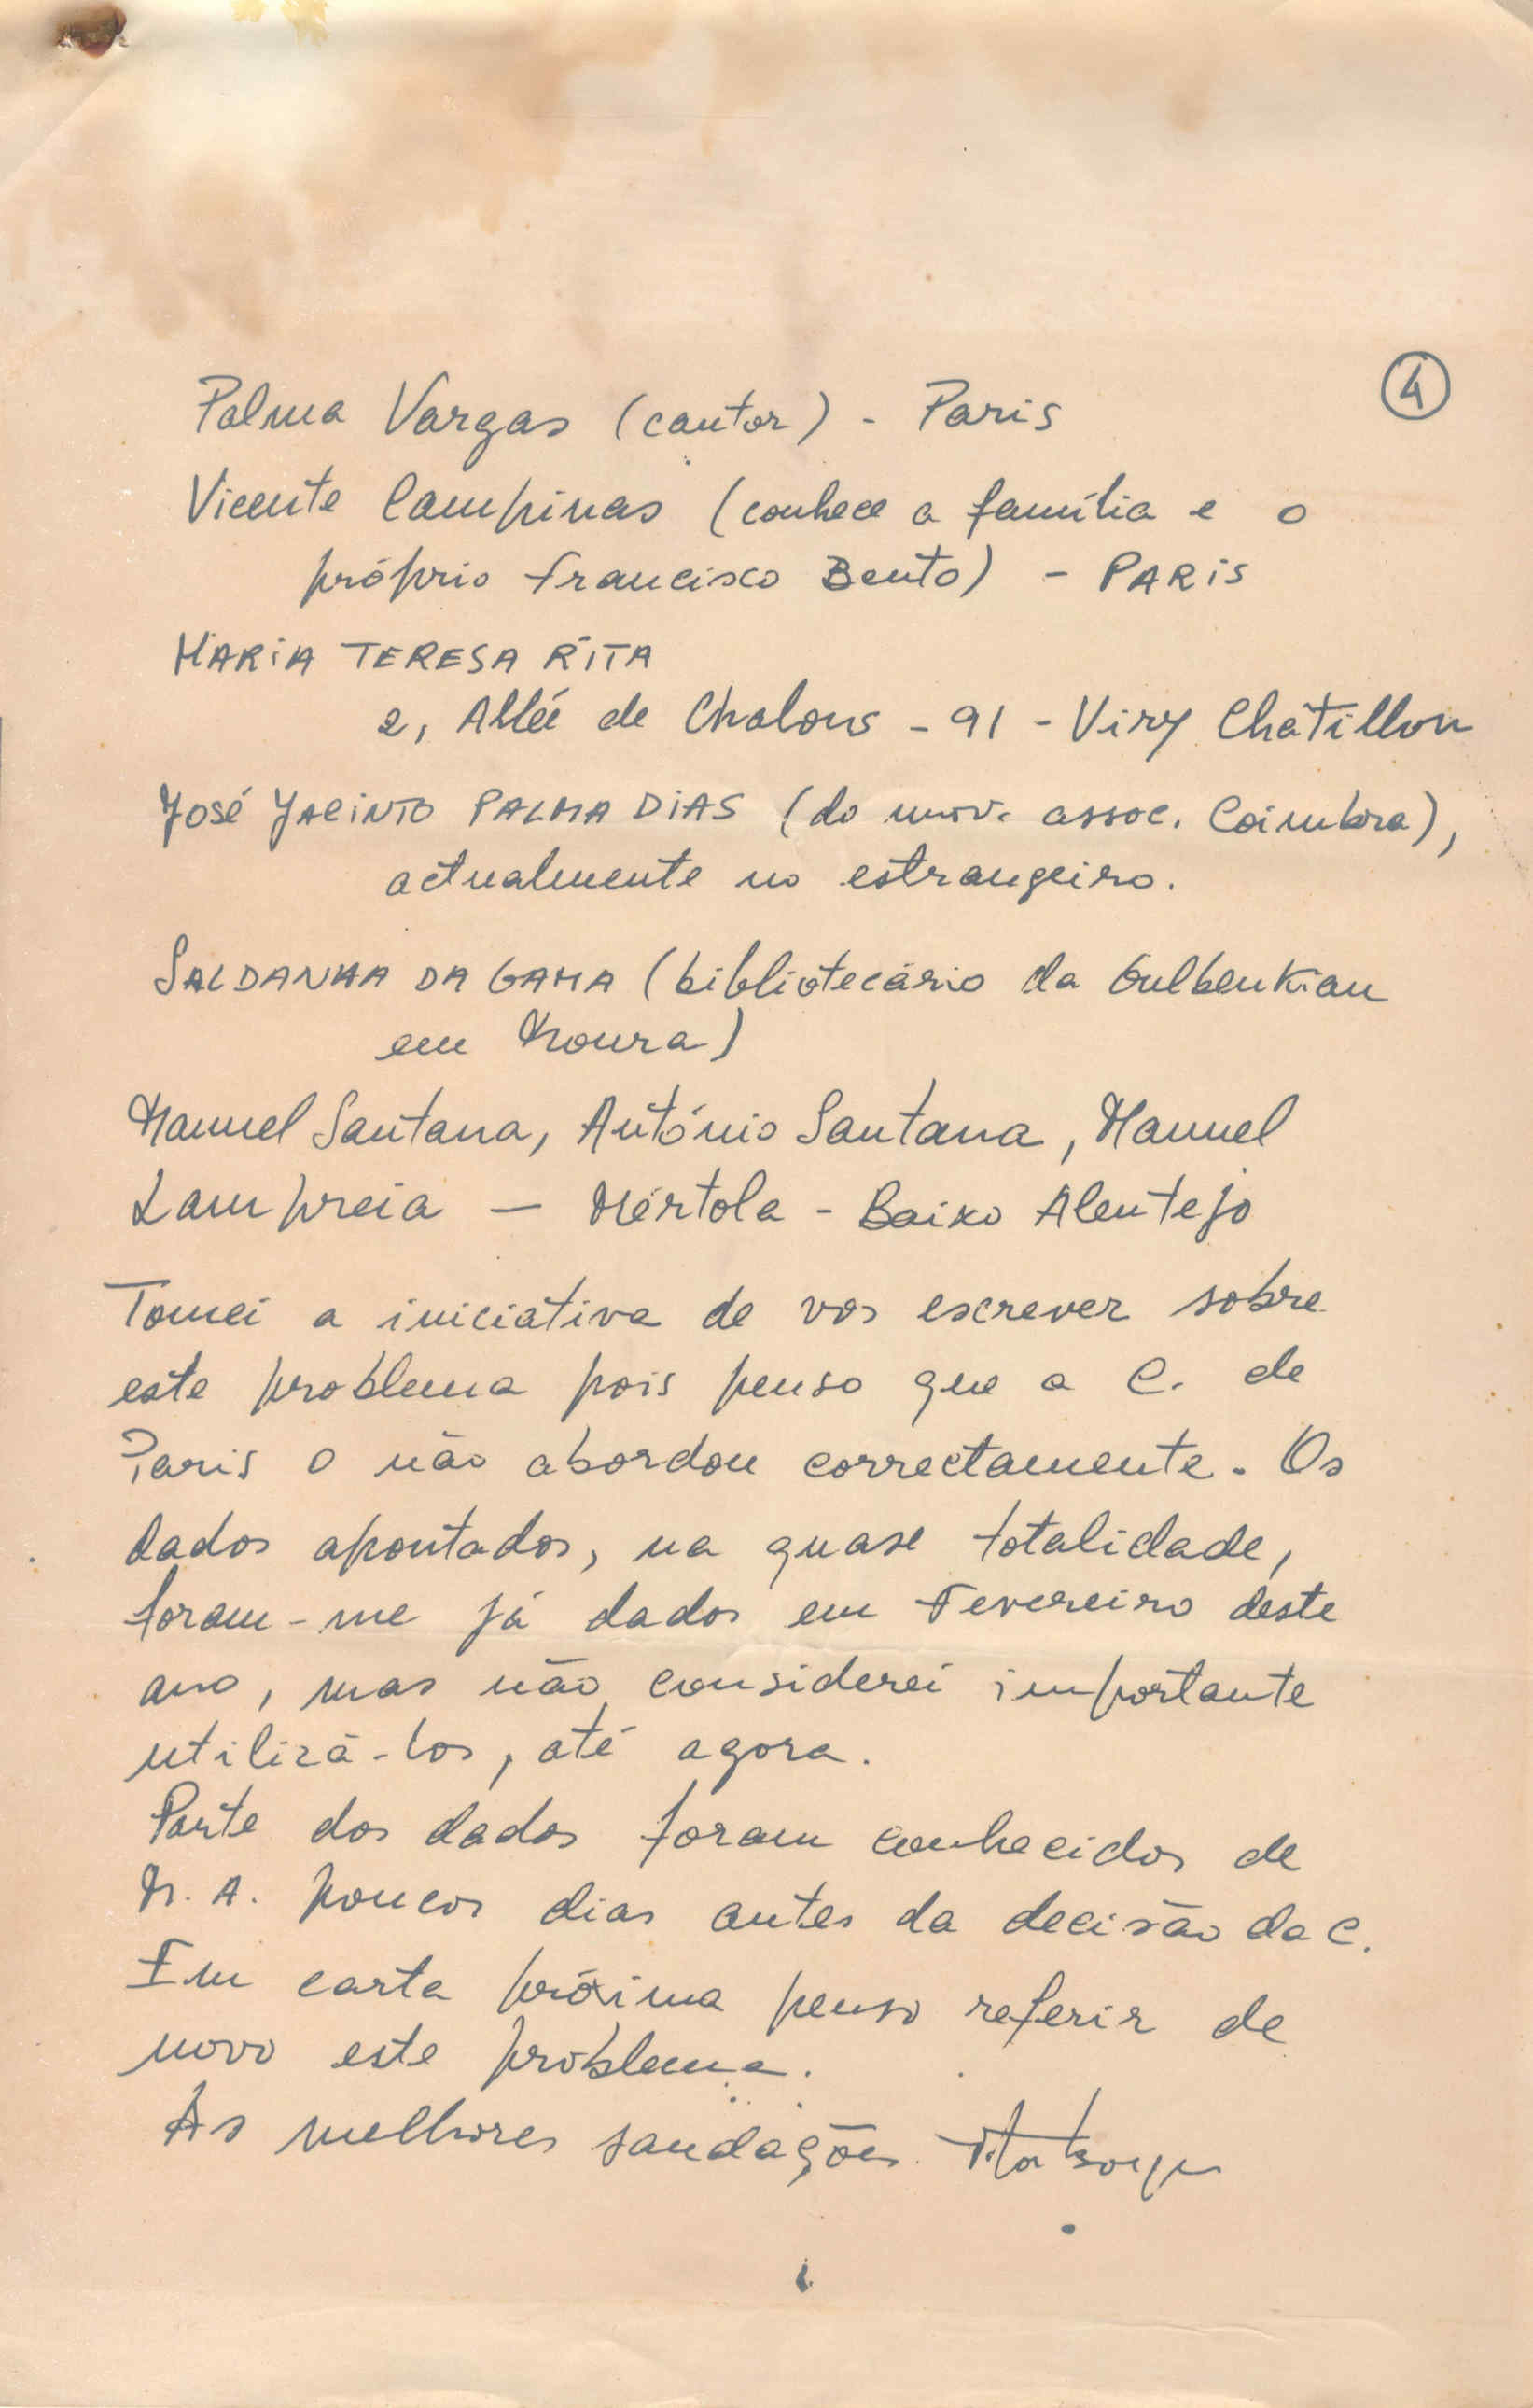 4
Palma Vargas (cantor) - Paris
Vicente Campinas (conhece a família e o
próprio Francisco Bento) - PARIS
MARIA TERESA RITA
2, Allée de Chalons - 91 - Viry Châtillon
JOSÉ JACINTO PALMA DIAS (do mov. assoc. Coimbra),
actualmente no estrangeiro.
SALDANHA DA GAMA (bibliotecário da Gulbenkian
em Moura)
Manuel Santana, António Santana, Manuel
Lampreia — Mértola - Baixo Alentejo
Tomei a iniciativa de vos escrever sobre
este problema pois penso que a C. de
Paris o não abordou correctamente. Os
dados apontados, na quase totalidade,
foram-me já dados em Fevereiro deste
ano, mas não considerei importante
utilizá-los, até agora.
Parte dos dados foram conhecidos de
M. A. poucos dias antes da decisão da C.
Em carta próxima penso referir de
novo este problema.
As melhores saudações